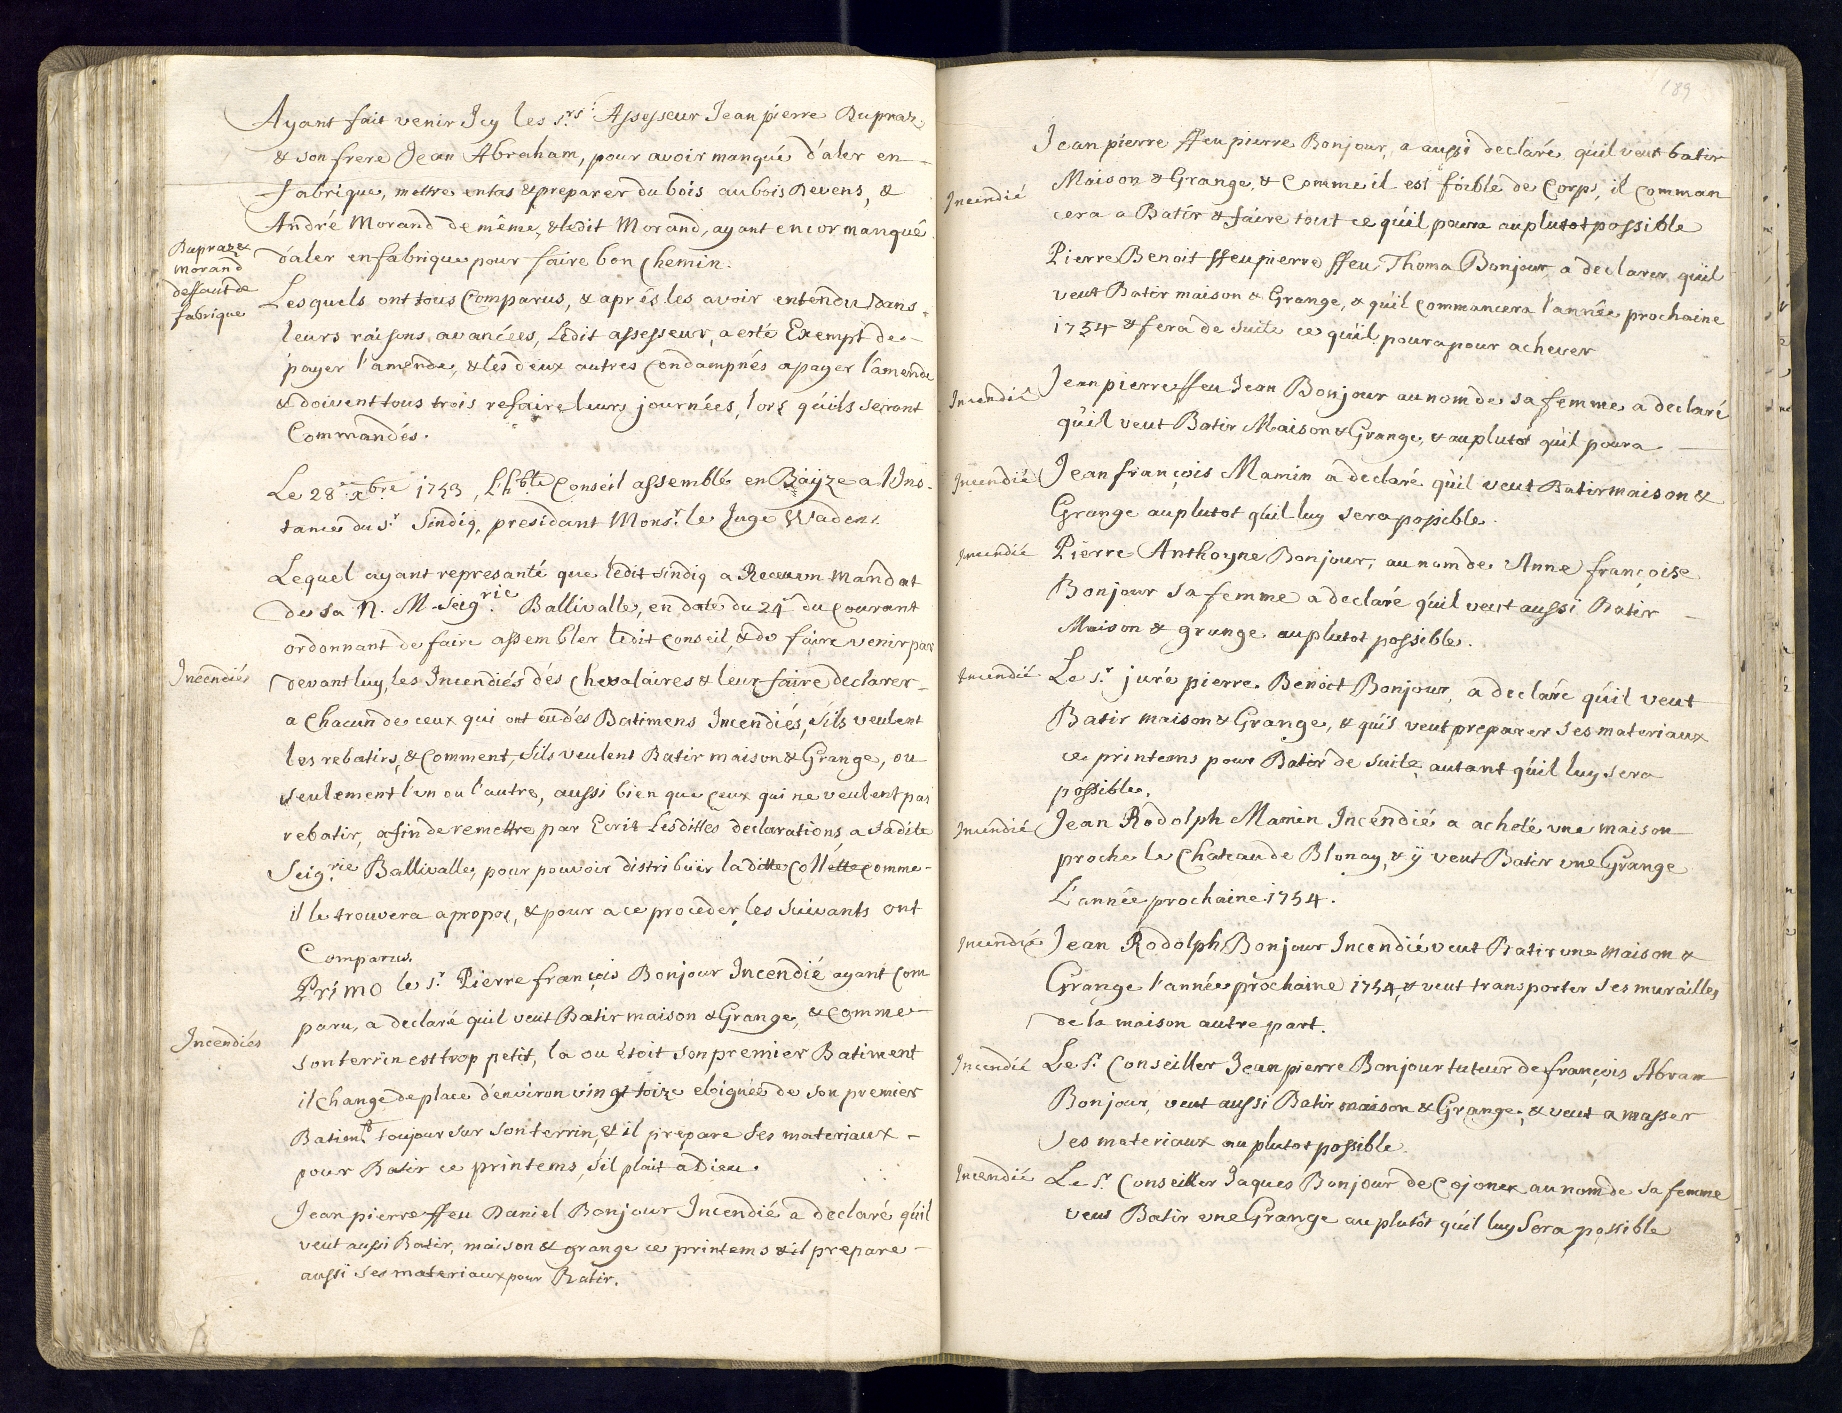 Ayant fait venir Icy les s.rs Assesseur Jean pierre Dupraz
& son frere Jean Abraham, pour avoir manqué d'aler en
fabrique, mettre en tas & preparer du bois au bois Devens, &
André Morand de même, & ledit Morand, ayant encor manqué
Dupraz &
Morand
deffaut de
fabrique
d'aler en fabrique pour faire bon chemin.
Lesquels ont tous Comparus, & aprés les avoir entendu dans
leurs raisons avancées, Ledit assesseur, a esté Exempt de
payer l'amende, & les deux autres Condampnés a payer l'amende
& doivent tous trois refaire leurs journées, lors qu'ils seront
Commandés.
Le 28.e xbre 1753, L'h.ble Conseil assemblé en Bäyze a l'Ins-
tance du s.r Sindiq, presidant Mons.r le Juge Wadens.
Lequel ayant represanté que ledit sindiq a Receu un mandat
de sa N. M. Seig.rie Ballivalle, en date du 24.e du Courant
ordonnant de faire assembler ledit Conseil, & de faire venir par
Incendiés
devant luy, les Incendiés dés Chevalaires & leur faire declarer
a Chacun de ceux qui ont eu dés Batimens Incendiés, s'ils veulent
les rebatirs, & Comment, s'ils veulent Batir maison & Grange, ou
seulement l'un ou l'autre, aussi bien que ceux qui ne veulent pas
rebatir, afin de remettre par Ecrit Lesdittes declarations, a sadite
Seig.rie Ballivalle, pour pouvoir distribuer laditte Collette comme
il le trouvera a propos, & pour a ce proceder, les suivants ont
Comparus.
Primo le s.r Pierre françois Bonjour Incendié ayant Com
paru, a declaré quil veut Batir maison & Grange, & comme
Incendiés
son terrin est trop petit, la ou étoit son premier Batiment
il change de place d'environ vingt toize eloignée de son premier
Batiem.t toujour sur son terrin, & il prepare ses materiaux
pour Batir ce printems, s'il plait a Dieu.
Jean pierre ffeu Daniel Bonjour Incendié a declaré qu'il
veut aussi Batir, maison & grange ce printems & il prepare
aussi ses materiaux pour Batir.
189
Jean pierre ffeu pierre Bonjour, a aussi declaré qu'il veut batir
Incendié
Maison & Grange, & Comme il est foible de Corps, il comman
cera a Batir & faire tout ce qu'il poura au plutot possible
Pierre Benoit ffeu pierre ffeu Thoma Bonjour, a declarer, qu'il
veut Batir maison & Grange, & qu'il commancera l'année prochaine
1754 & fera de suite ce qu'il poura pour achever
Jean pierre ffeu Jean Bonjour au nom de sa femme a declaré
Incendié
qu'il veut Batir Maison & Grange, & au plutot qu'il poura
Incendié
Jean françois Mamin a declaré qu'il veut Batir maison &
Grange au plutot qu'il luy sera possible.
Incendié
Pierre Anthoyne Bonjour, au nom de Anne françoise
Bonjour sa femme a declaré qu'il veut aussi Batir
Maison & grange au plutot possible.
Incendié
Le s.r juré pierre Benoit Bonjour, a declaré qu'il veut
Batir maison & Grange, & qu'il veut preparer ses materiaux
ce printems pour Batir de suite, autant qu'il luy sera
possible.
Incendié
Jean Rodolph Mamin Incendié a acheté une maison
proche le Chateau de Blonay, & ÿ veut Batir une Grange
L'année prochaine 1754.
Incendié
Jean Rodolph Bonjour Incendié veut Batir une maison &
Grange l'année prochaine 1754, & veut transporter ses murailles
de la maison autre part.
Incendié
Le s.r Conseiller Jean pierre Bonjour tuteur de françois Abram
Bonjour, veut aussi Batir maison & Grange, & veut amasser
ses materiaux au plutot possible.
Incendié
Le s.r Conseiller Jaques Bonjour de Cojonex au nom de sa femme
veut Batir une Grange au plutôt qu'il luy Sera possible